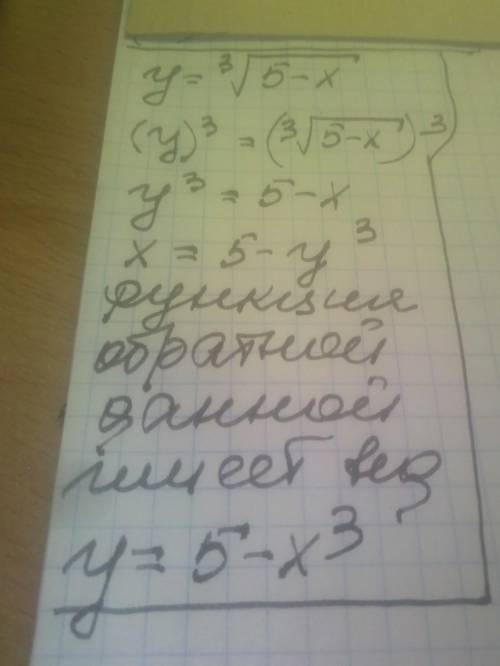 y = ∛(5-x)
(y)³ = (∛(5-x))³
y³ = 5-x
x = 5-y³
функция
обратной
данной
имеет вид
y = 5-x³